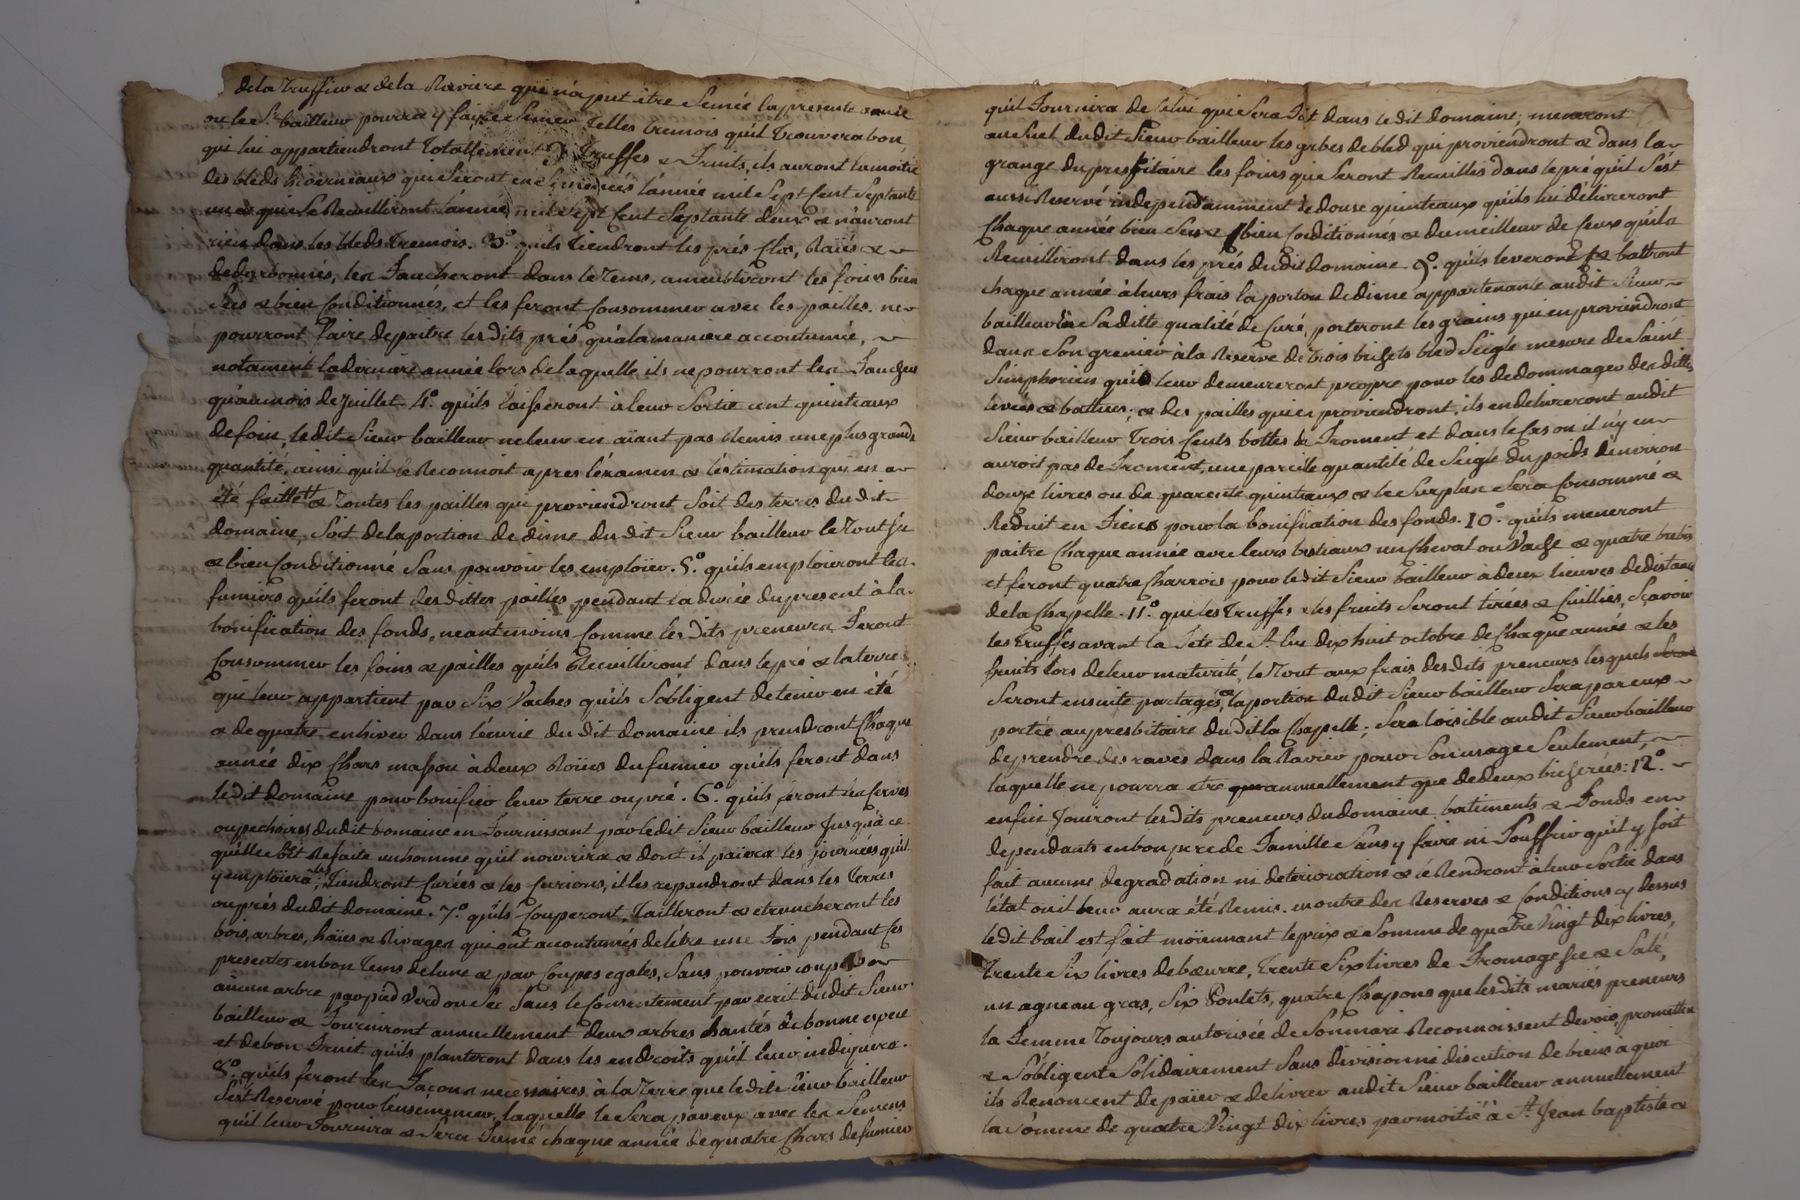 de la truffiere & de la Raviere qui n'a put être Semée la presente année
ou le Sr bailleur pourra y faire Semer telles tremois qu'il trouvera bon,
qui lui appartiendront totallement truffes & fruits, ils auront la moitié
des bleds hivernaux qui Seront ensemencés l'année mil Sept Cent Septante
un & qui Se Recuilliront l'année mil Sept Cent Septante deux & n'auront
rien dans les bleds tremois. 3° qu'ils tiendront les prés Clos, Raiés &
dedarbonnés, les faucheront dans le tems, ameubliront les foins bien
Secs & bien Conditionnés, et les feront Consommer avec les pailles. ne
pourront faire depaitre lesdits prés qu'à la maniere accoutumée,
notament la derniere année lors de laquelle ils ne pourront les faucher
qu'au mois de Juillet. 4° qu'ils laisseront à leur Sortie cent quinteaux
de foin, ledit Sieur bailleur ne leur en aïant pas Remis une plus grande
quantité, ainsi qu'il le Reconnoit apres l'éxamen & l'estimation qui en a
été faitte & toutes les pailles qui proviendront Soit des terres dudit
domaine, Soit de la portion de dime dudit Sieur bailleur le tout Sec
& bien Conditionné Sans pouvoir les emploïer. 5° qu'ils emploieront les
fumiers qu'ils feront desdittes pailles pendant la durée du present à la
bonification des fonds, neantmoins Comme lesdits preneurs feront
Consommer les foins & pailles qu'ils Recuilliront dans le pré & la terre
qui leur appartient par Six Vaches qu'ils S'obligent de tenir en été
& de quatre en hiver dans l'écurie dudit domaine ils prendront Chaque
année dix Chars massou à deux Roües du fumier qu'ils feront dans
ledit domaine pour bonifier leur terre ou pré. 6° qu'ils feront les serves
ou pechoires dudit domaine en fournissant par ledit Sieur bailleur Jusqu'à ce
qu'elle soit Refaite un homme qu'il nourrira & dont il païera les journées qu'il
y emploiera, les tiendront Curées & les Curions, il les repandront dans les terres
ou prés dudit domaine. 7° qu'ils Couperont, tailleront & etroncheront les
bois, arbres, haïes & Rivages qui ont accoutumés de l'être une fois pendant Ces
presentes en bon tems de lune & par Coupes egales, Sans pouvoir couper
aucun arbre par pied Verd ou Sec Sans le Consentement par écrit dudit Sieur
bailleur & fourniront annuellement deux arbres hantés de bonne espece
et de bon fruit qu'ils planteront dans les endroits qu'il leur indiquera.
8° qu'ils feront les façons necessaires à la terre que ledit Sieur bailleur
S'est Reservé pour l'ensemencer, laquelle le Sera par eux avec les Semens
qu'il leur fournira & Sera fumé chaque année de quatre Chars de fumier
qu'il fournira de Celui qui Sera fait dans ledit domaine; meneront
au Suel dudit Sieur bailleur les gerbes de bled qui proviendront & dans la
grange du presbitaire les foins qui Seront Recuillies dans le pré qu'il S'est
aussi Reservé independamment de douze quinteaux qu'ils lui délivreront
Chaque année bien Secs & bien Conditionnés & du meilleur de Ceux qu'ils
Recuilliront dans les prés dudit domaine. 9° qu'ils leveront & battront
chaque année à leurs frais la portion de dime appartenante audit Sieur
bailleur en Saditte qualité de Curé, porteront les grains qui en proviendront
dans Son grenier à la Reserve de trois bichets bled Seigle mesure de Saint
Simphorien qui leur demeureront propre pour les dedommager desdittes
levées & battues; & des pailles qui en proviendront, ils en delivreront audit
Sieur bailleur trois Cents bottes de froment et dans le Cas ou il n'y en
auroit pas de froment, une pareille quantité de Seigle du poids d'environ
douze livres ou de quarente quinteaux & le Surplus Sera Consommé &
Reduit en fiens pour la bonification des fonds. 10° qu'ils meneront
paitre Chaque année avec leurs bestiaux un Cheval ou Vache & quatre brebis
et feront quatre Charrois pour ledit Sieur bailleur à deux lieues de distance
de la Chapelle. 11° que les truffes & les fruits Seront tirées & Cuillies, Sçavoir
les truffes avant la fête de St luc dix huit octobre de Chaque année & les
fruits lors de leur maturité, le tout aux frais desdits preneurs lesquels
Seront ensuite partagés, & la portion dudit Sieur bailleur Sera par eux
portée au presbitaire dudit la Chapelle; Sera loisible audit Sieur bailleur
de prendre des raves dans la Raviere pour Son usage Seulement,
laquelle ne pourra etre annuellement que de deux bicherées: 12°
enfin Jouiront lesdits preneurs du domaine, batiments & fonds en
dependants en bon pere de famille Sans y faire ni Souffrir qu'il y soit
fait aucune degradation ni deterioration & le Rendront à leur Sortie dans
l'état ou il leur aura été Remis. outre des Reserves & Conditions cy dessus
ledit bail est fait moïennant le prix & Somme de quatre Vingt dix livres,
trente Six livres de boeurre, trente Six livres de fromage Sec & Salé,
un agneau gras, Six Poulets, quatre Chapons que lesdits mariés preneurs
la femme toujours autorisée de Son mari Reconnoissent devoir, promettent
& S'obligent Solidairement Sans division ni discution de biens à quoi
ils Renoncent de païer & delivrer audit Sieur bailleur annuellement
la Somme de quatre Vingt dix livres par moitié à St Jean baptiste &